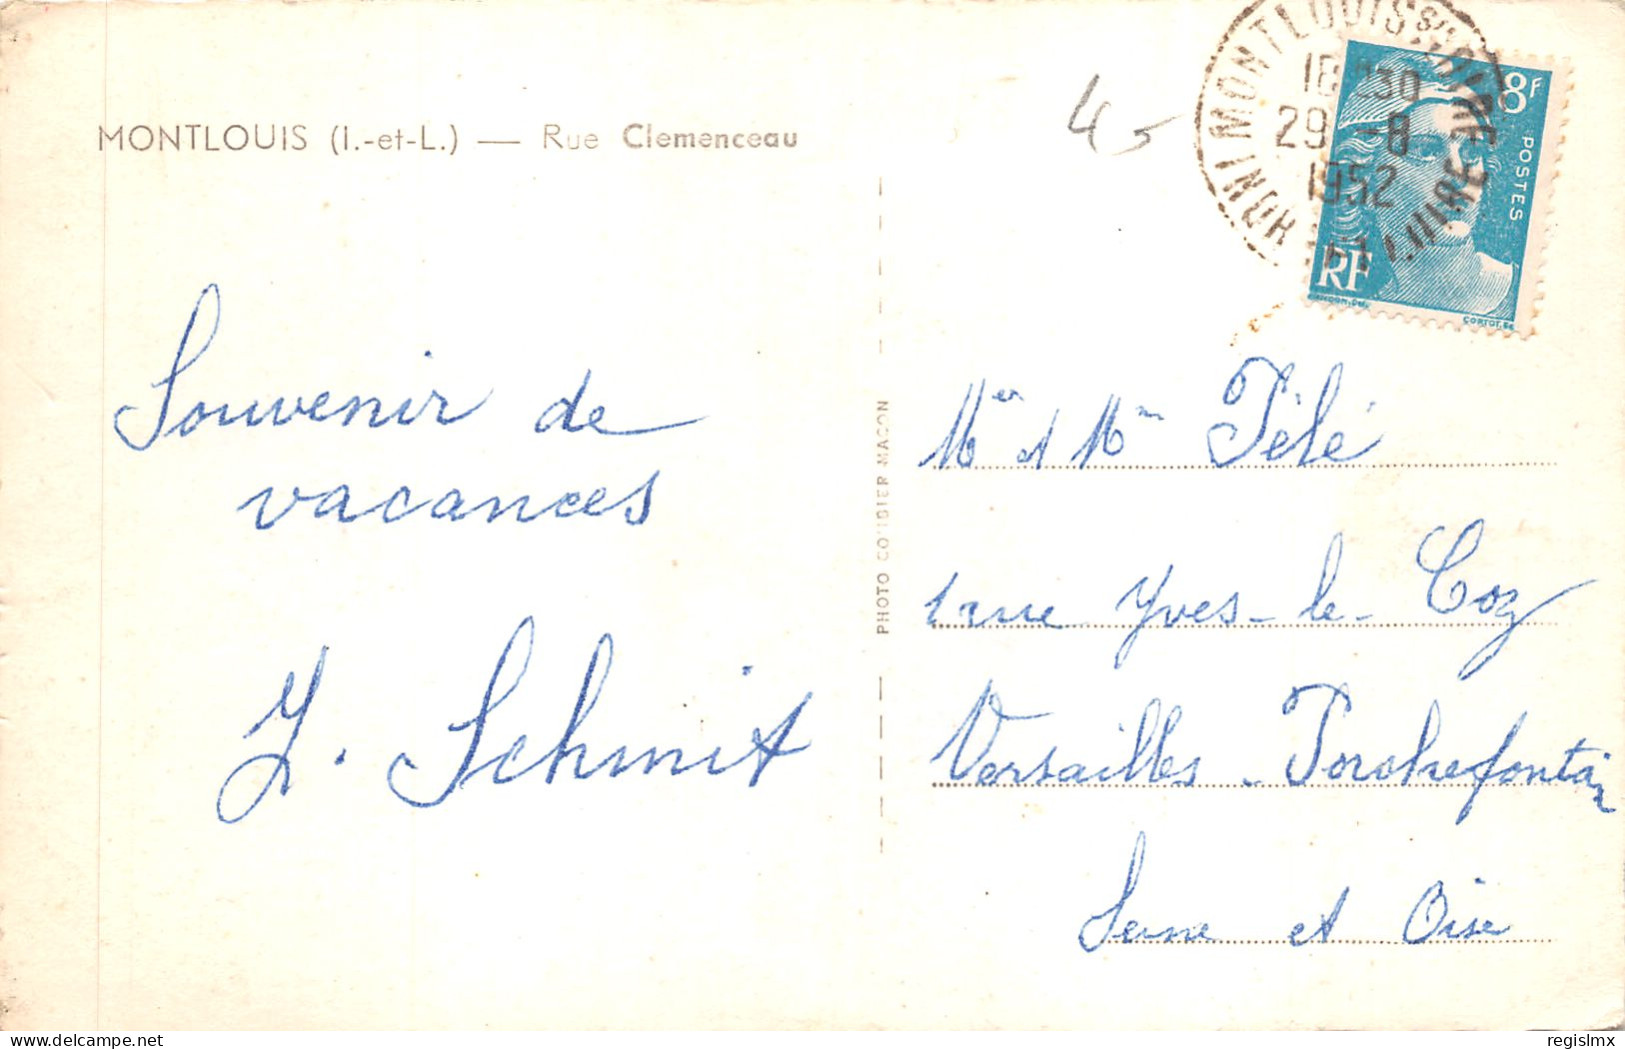 MONTLOUIS (I.-et-L.) — Rue Clemenceau
45
MONTLOUIS S/LOIRE
29 -8
1952
8F
POSTES
RF
Souvenir de
vacances
Schmit
PHOTO COMBIER MACON
Mer et Mm Pélé
1 rue Yves-le-Coz
Versailles - Porchefontain
Seine et Oise
regislmx